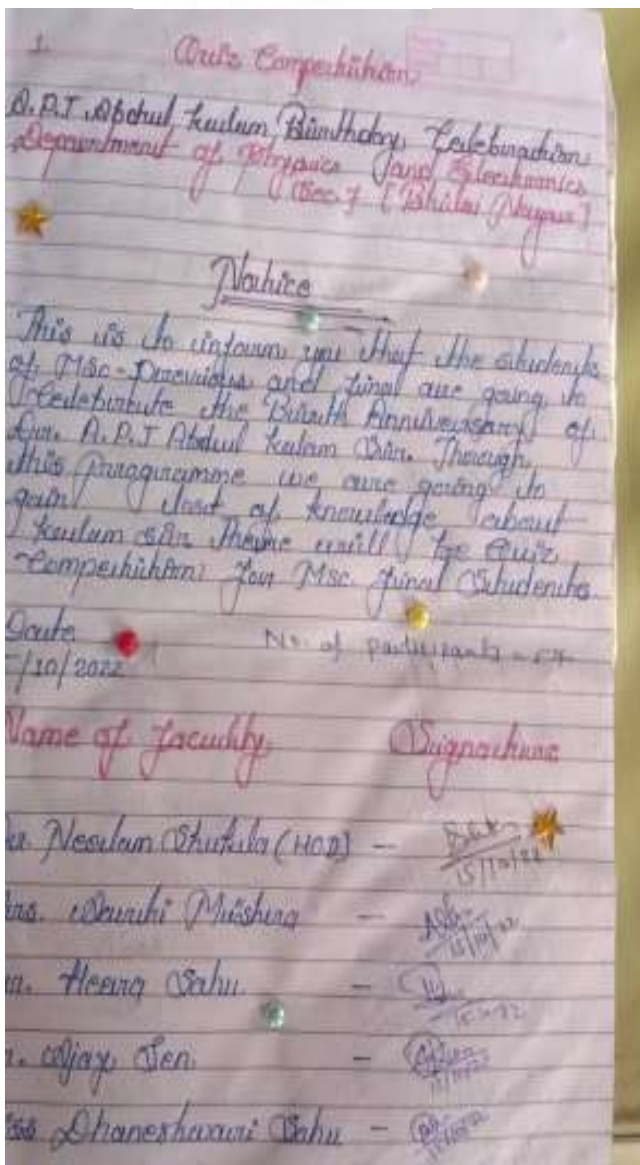 1.
Quiz Competition
A.P.J. Abdul Kalam Birthday Celebration
Department of Physics and Electronics
Sec 7 [Bhilai Nagar]
Notice
This is to inform you that the students
of MSc-Previous and final are going to
Celebrate the Birth Anniversary of
Dr. A.P.J Abdul Kalam Sir. Through
this programme we are going to
gain a lot of knowledge about
Kalam sir There will be Quiz
Competition for Msc final Students
Date
/10/2022
No. of participants -
Name of faculty Signature
Neelam Shukla (HOD) - 15/10/22
Mrs. Mishra - 15/10/22
Heena Sahu - 15.10.22
Ajay Sen -
Miss Dhaneshwari Sahu -